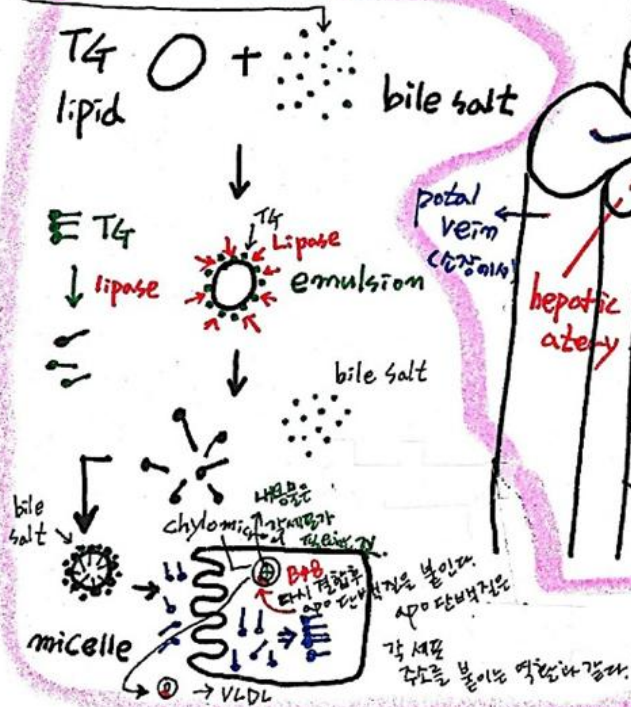 TG
lipid
+
bile salt
TG
lipase
TG
Lipase
emulsion
potal
vein
(소장에서)
hepatic
atery
bile salt
bile
salt
micelle
chylomic
내용물은
각 세포가
B48
다시 결합후
apo 단백질을 붙인다.
apo 단백질은
각 세포
주소를 붙이는 역할과 같다.
→ VLDL